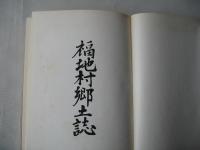 福地村郷土誌